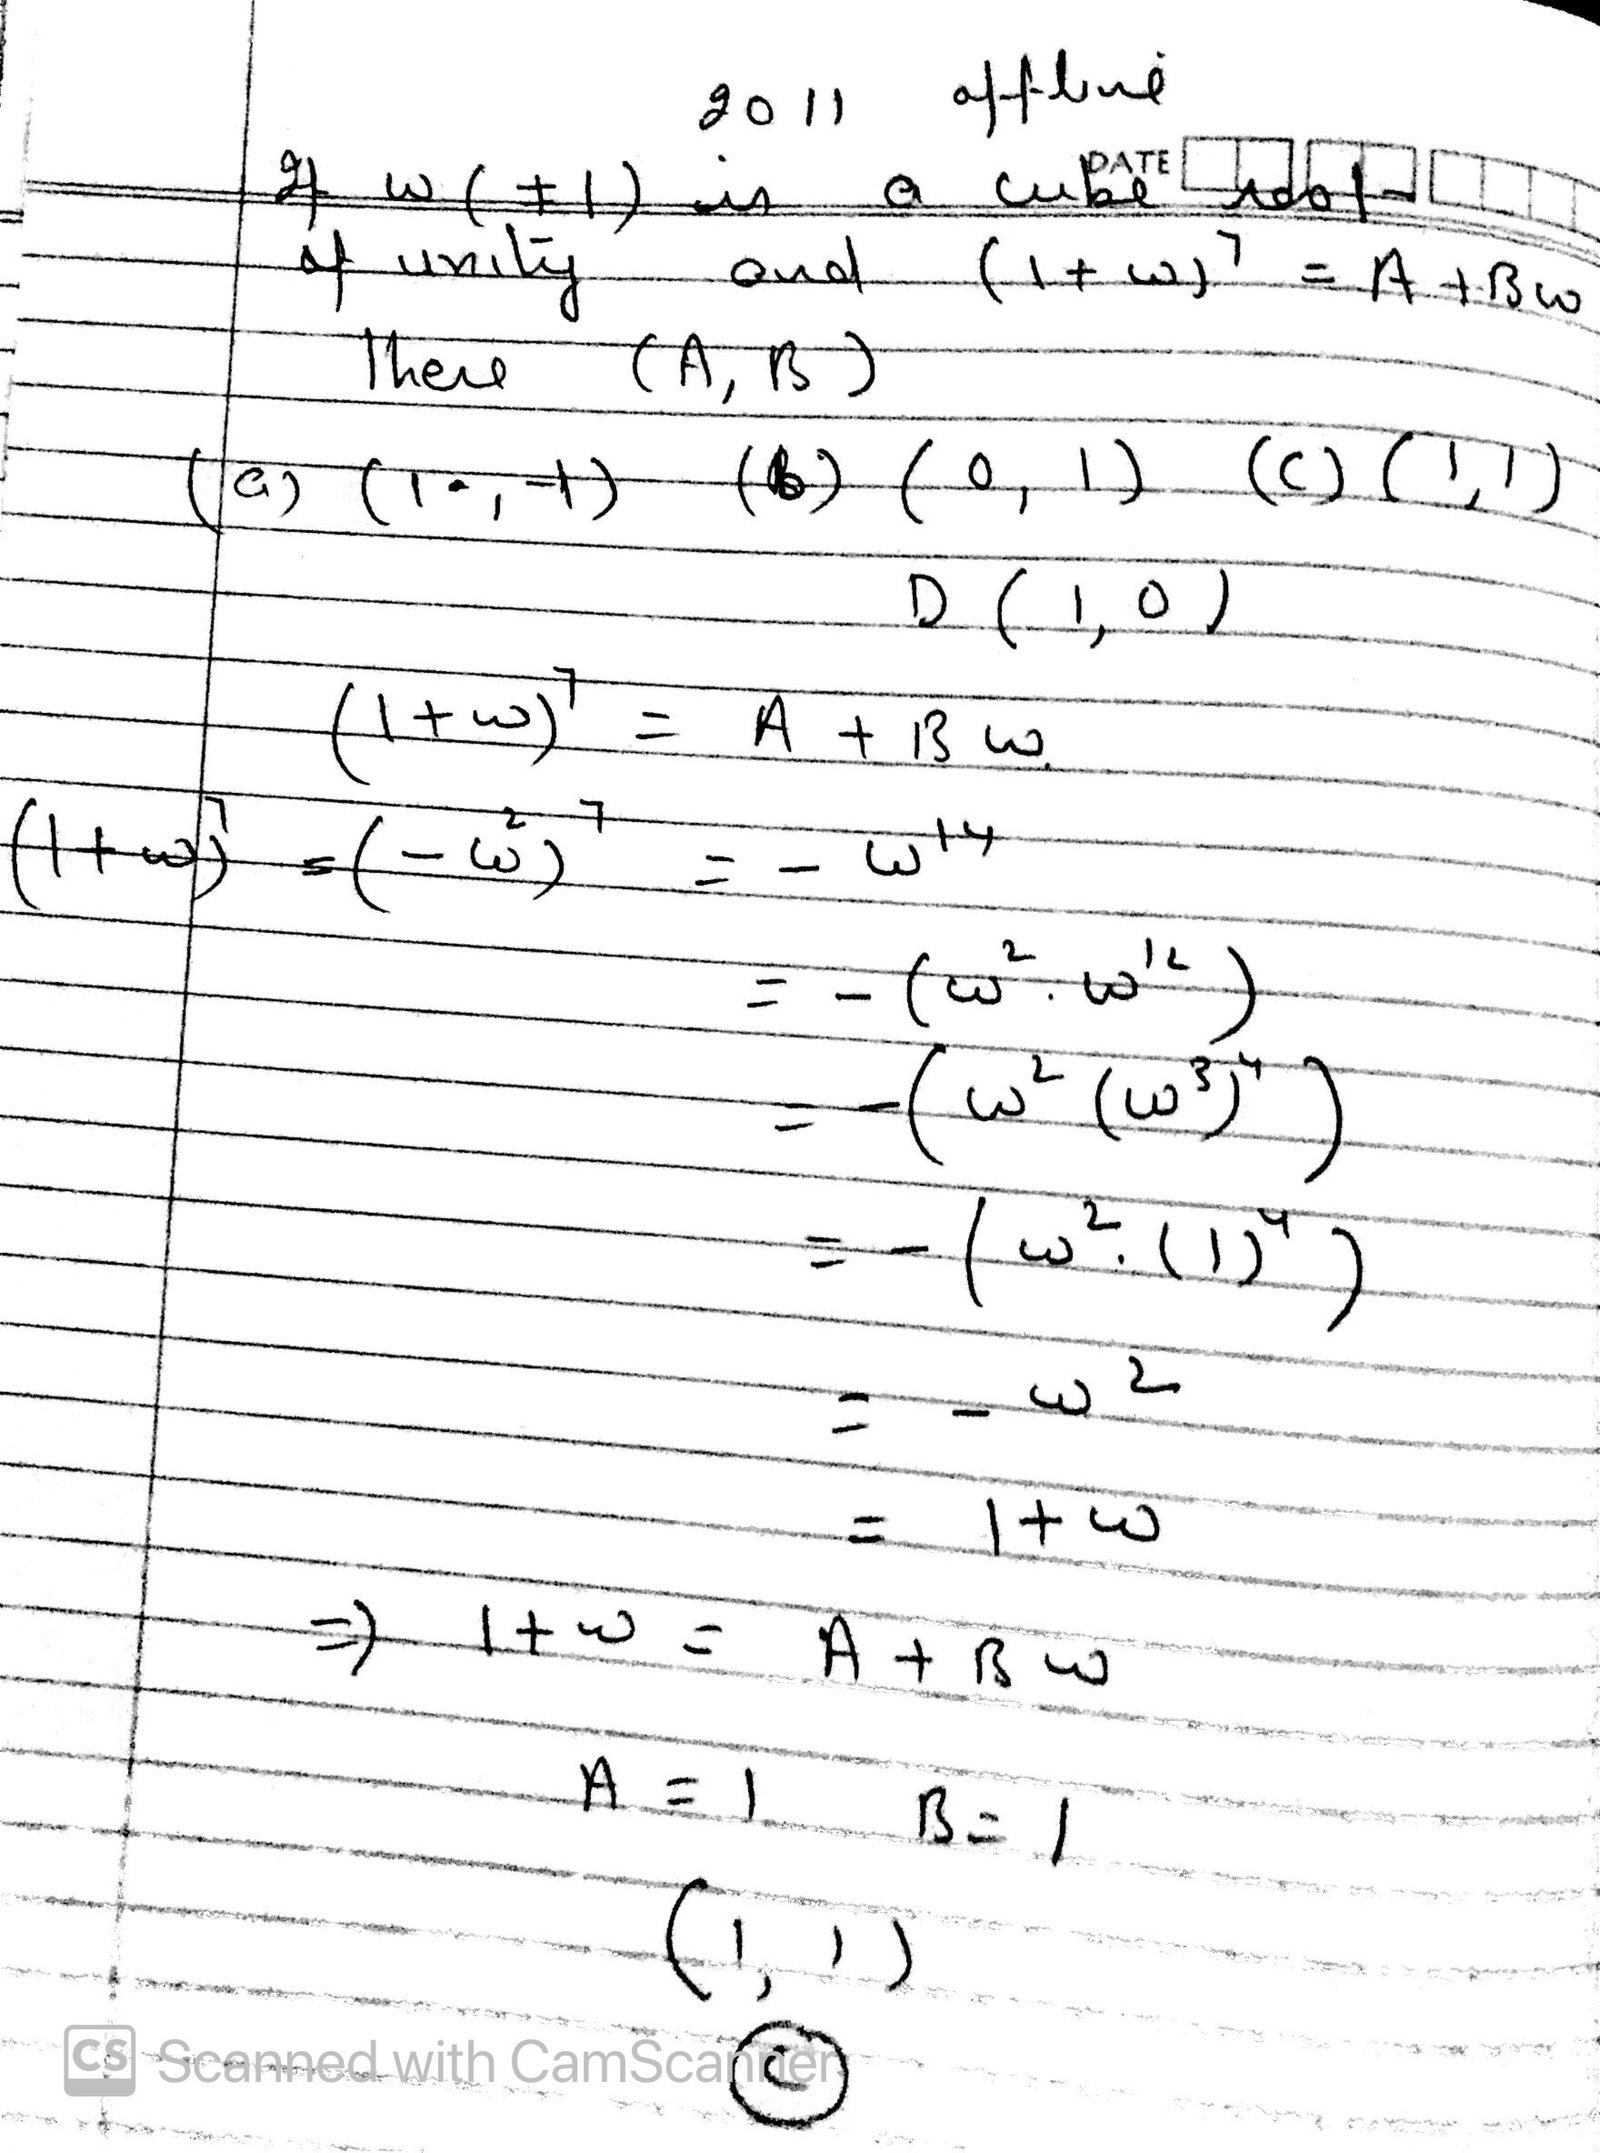 2011 offline
DATE
If ω (≠1) is a cube root
of unity and (1+ω)⁷ = A + Bω
There (A, B)
(a) (1, -1) (b) (0, 1) (c) (1,1)
D (1, 0)
(1+ω)⁷ = A + Bω.
(1+ω)⁷ = (-ω²)⁷ = - ω¹⁴
= - (ω² . ω¹²)
= - (ω² (ω³)⁴)
= - (ω² . (1)⁴)
= - ω²
= 1+ω
⇒ 1+ω = A + Bω
A = 1 B = 1
(1, 1)
C
CS Scanned with CamScanner